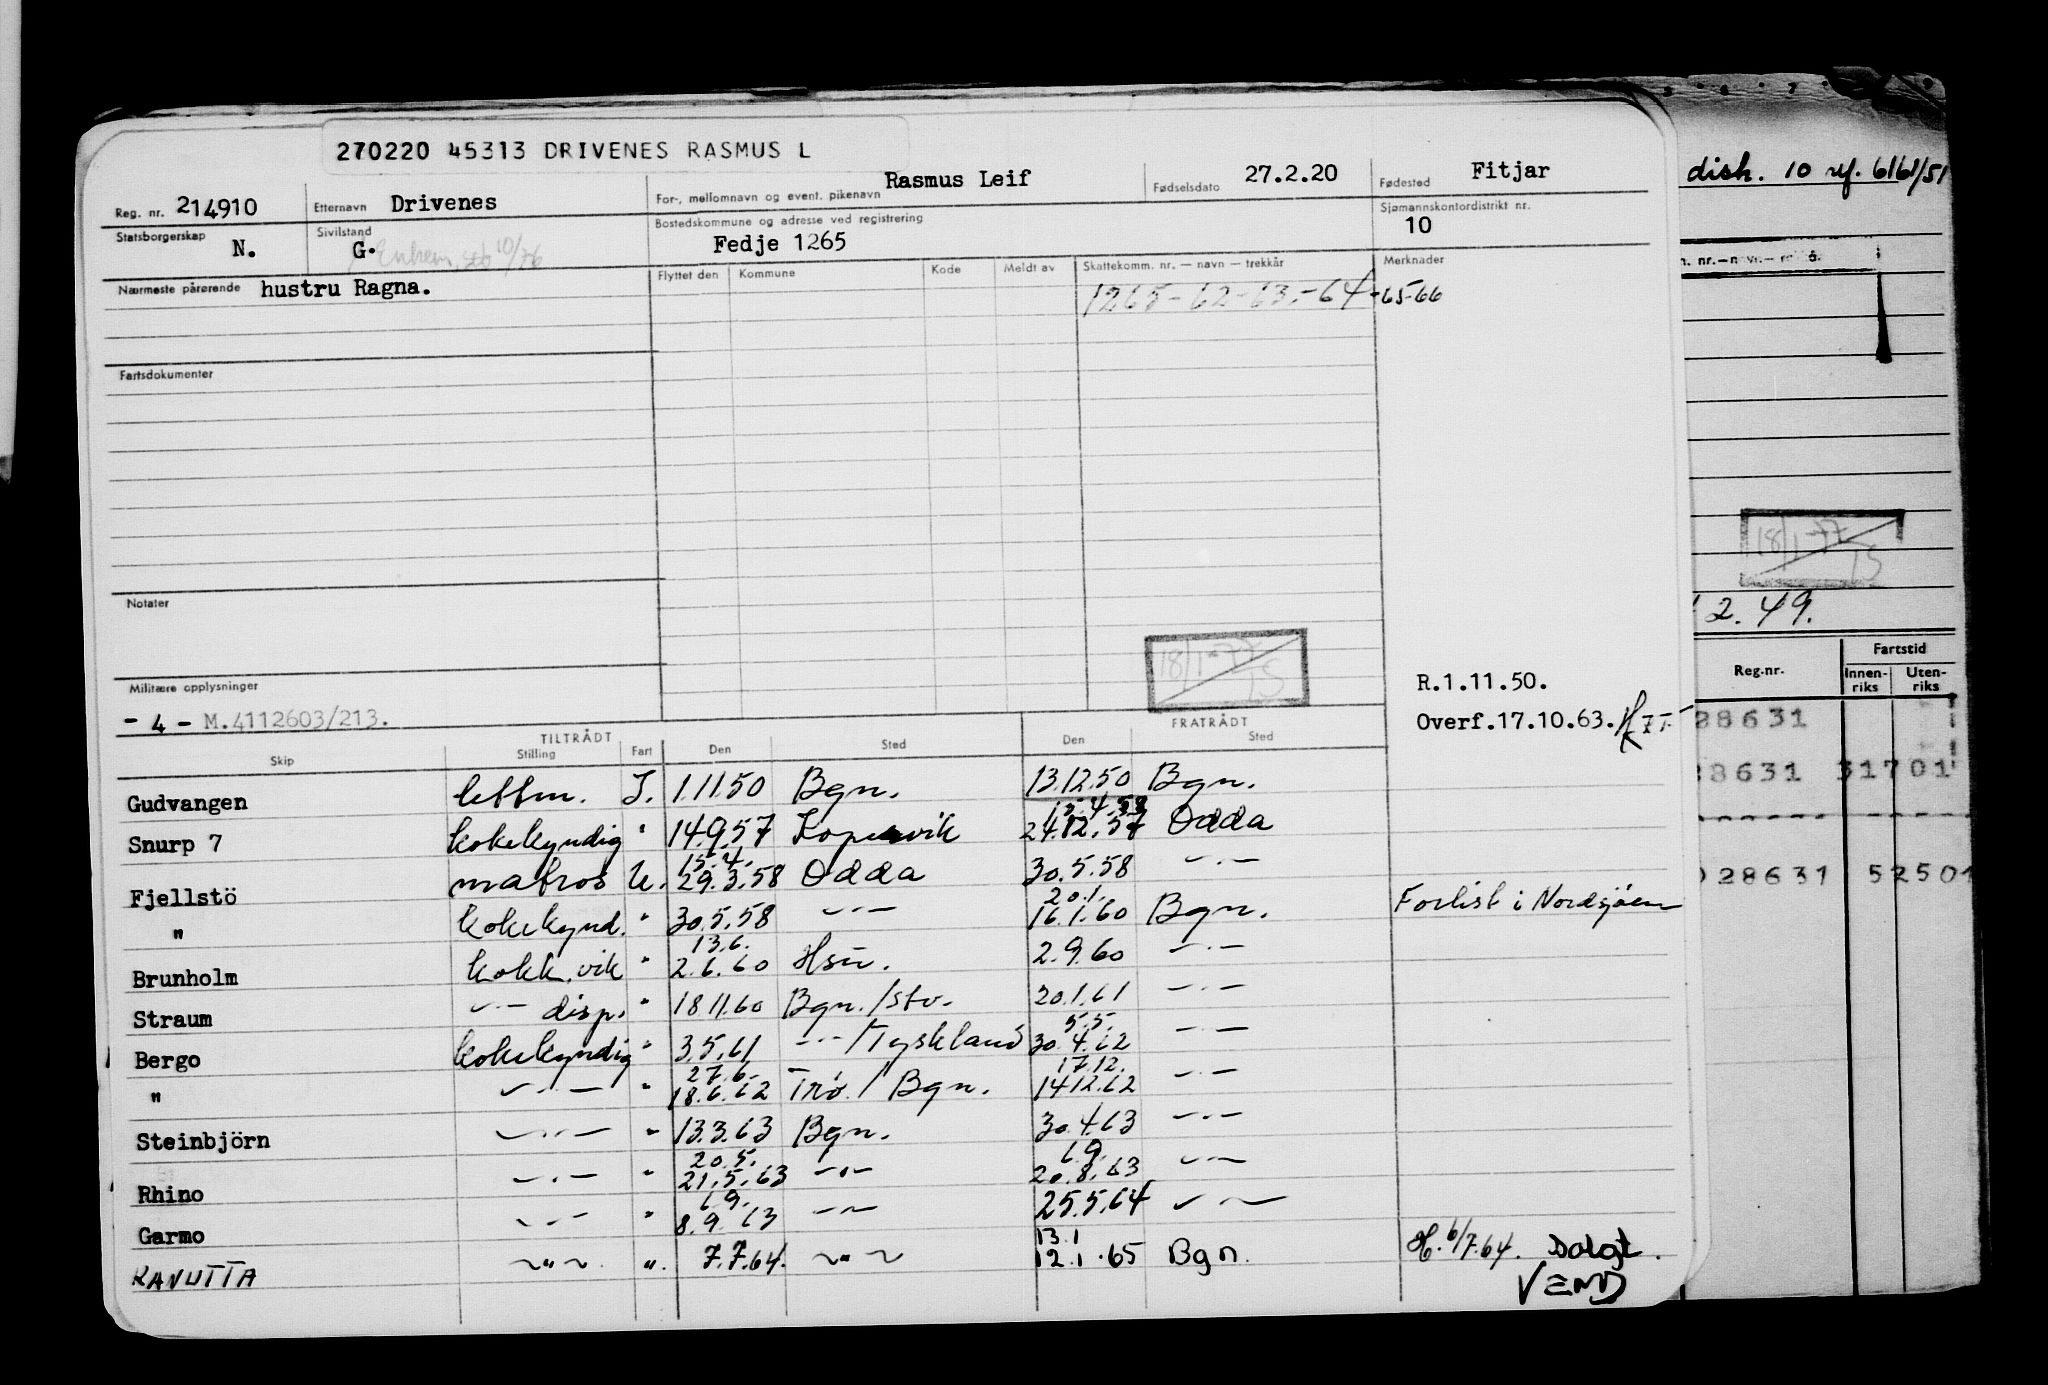 270220 45313 DRIVENES RASMUS L
Reg. nr. 214910 Etternavn Drivenes For-, mellomnavn og event. pikenavn Rasmus Leif Fødselsdato 27.2.20 Fødested Fitjar
Statsborgerskap N. Sivilstand G. Enkem. 10/76 Bostedskommune og adresse ved registrering Fedje 1265 Sjømannskontordistrikt nr. 10
Nærmeste pårørende hustru Ragna. Flyttet den Kommune Kode Meldt av Skattekomm. nr. — navn — trekkår Merknader
1265-62-63.-64-65-66
Fartsdokumenter
Notater
18/1-77
Militære opplysninger R.1.11.50.
- 4 - M.4112603/213. Overf.17.10.63.
TILTRÅDT FRATRÅDT
Skip Stilling Fart Den Sted Den Sted
Gudvangen lettm. I. 1.11.50 Bgn. 13.12.50 Bgn.
15.4.58
Snurp 7 kokekyndig " 14.9.57 Kopervik 24.12.57 Odda
15.4.
Fjellstö matros U. 29.3.58 Odda 30.5.58 —"—
20.1.
" kokekynd. " 30.5.58 —"— 16.1.60 Bgn. Forlist i Nordsjøen
13.6.
Brunholm kokk.vik " 2.6.60 2.9.60 —"—
Straum —"— disp. " 18.11.60 Bgn./Stv. 20.1.61 —"—
5.5.
Bergo kokekyndig " 3.5.61 —"—/Tyskland 30.4.62 —"—
27.6. 17.12.
" —"— " 18.6.62 Trö./ Bgn. 14.12.62 —"—
Steinbjörn —"— " 13.3.63 Bgn. 30.4.63 —"—
20.5. 6.9.
Rhino —"— " 21.5.63 —"— 20.8.63 —"—
6.9.
Garmo —"— " 8.9.63 —"— 25.5.64 —"—
13.1
RANUTTA —"— ". 7.7.64. —"— 12.1.65 Bgn. H. 6/7.64. Dalgt.
VEND
disk. 10 ref. 6161/51
18/1-77
2.49.
Reg.nr. Fartstid
Innen-riks Uten-riks
28631
28631 31701
028631 52501